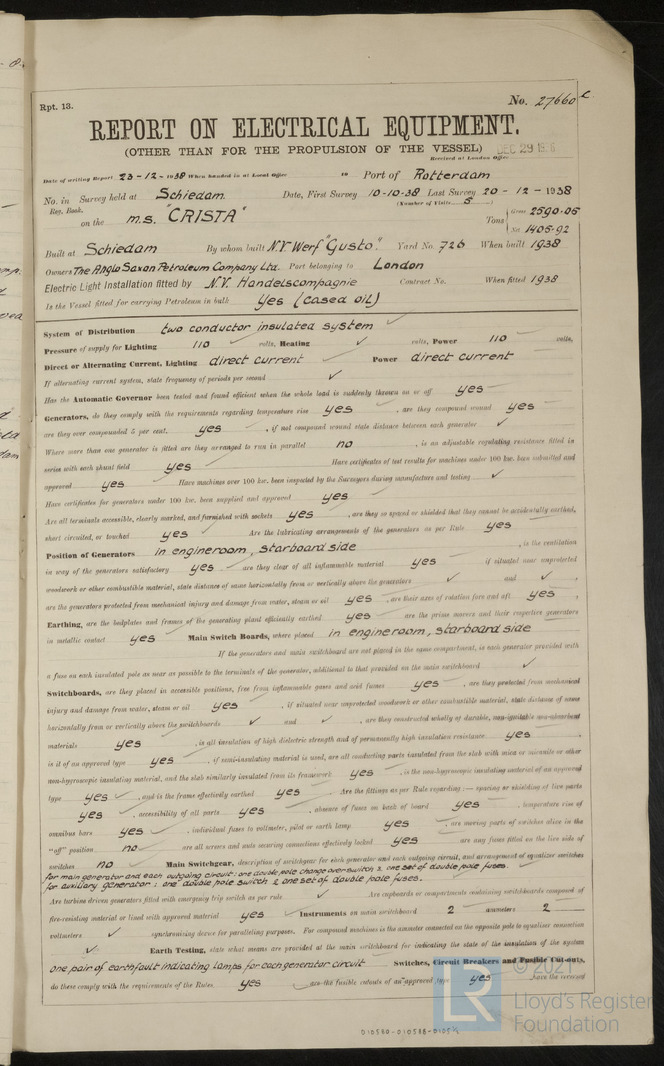 Rpt. 13.
No. 27660
REPORT ON ELECTRICAL EQUIPMENT.
(OTHER THAN FOR THE PROPULSION OF THE VESSEL) DEC 29 19
Received at London Office
Date of writing Report 23-12-1938 When handed in at Local Office 19 Port of Rotterdam
No. in Survey held at Schiedam. Date, First Survey 10-10-38 Last Survey 20-12-1938
Reg. Book. (Number of Visits 5)
on the m.s. "CRISTA" Tons Gross 2590.05
Net 1405.92
Built at Schiedam By whom built N.V. Werf "Gusto." Yard No. 726 When built 1938
Owners The Anglo Saxon Petroleum Company Ltd. Port belonging to London
Electric Light Installation fitted by N.V. Handelscompagnie Contract No. When fitted 1938
Is the Vessel fitted for carrying Petroleum in bulk yes (cased oil)
System of Distribution two conductor insulated system
Pressure of supply for Lighting 110 volts, Heating ✓ volts, Power 110 volts.
Direct or Alternating Current, Lighting direct current Power direct current
If alternating current system, state frequency of periods per second ✓
Has the Automatic Governor been tested and found efficient when the whole load is suddenly thrown on or off yes
Generators, do they comply with the requirements regarding temperature rise yes, are they compound wound yes
are they over compounded 5 per cent. yes, if not compound wound state distance between each generator ✓
Where more than one generator is fitted are they arranged to run in parallel no, is an adjustable regulating resistance fitted in
series with each shunt field yes Have certificates of test results for machines under 100 kw. been submitted and
approved yes Have machines over 100 kw. been inspected by the Surveyors during manufacture and testing ✓
Have certificates for generators under 100 kw. been supplied and approved yes
Are all terminals accessible, clearly marked, and furnished with sockets yes, are they so spaced or shielded that they cannot be accidentally earthed,
short circuited, or touched yes Are the lubricating arrangements of the generators as per Rule yes
Position of Generators in engineroom, starboard side, is the ventilation
in way of the generators satisfactory yes are they clear of all inflammable material yes if situated near unprotected
woodwork or other combustible material, state distance of same horizontally from or vertically above the generators ✓ and ✓,
are the generators protected from mechanical injury and damage from water, steam or oil yes, are their axes of rotation fore and aft yes,
Earthing, are the bedplates and frames of the generating plant efficiently earthed yes are the prime movers and their respective generators
in metallic contact yes Main Switch Boards, where placed in engineroom, starboard side
If the generators and main switchboard are not placed in the same compartment, is each generator provided with
a fuse on each insulated pole as near as possible to the terminals of the generator, additional to that provided on the main switchboard ✓
Switchboards, are they placed in accessible positions, free from inflammable gases and acid fumes yes, are they protected from mechanical
injury and damage from water, steam or oil yes, if situated near unprotected woodwork or other combustible material, state distance of same
horizontally from or vertically above the switchboards ✓ and ✓, are they constructed wholly of durable, non-ignitable non-absorbent
materials yes, is all insulation of high dielectric strength and of permanently high insulation resistance yes,
is it of an approved type yes, if semi-insulating material is used, are all conducting parts insulated from the slab with mica or micanite or other
non-hygroscopic insulating material, and the slab similarly insulated from its framework yes, is the non-hygroscopic insulating material of an approved
type yes, and is the frame effectively earthed yes. Are the fittings as per Rule regarding:— spacing or shielding of live parts
yes, accessibility of all parts yes, absence of fuses on back of board yes, temperature rise of
omnibus bars yes, individual fuses to voltmeter, pilot or earth lamp yes, are moving parts of switches alive in the
"off" position no are all screws and nuts securing connections effectively locked yes are any fuses fitted on the live side of
switches no Main Switchgear, description of switchgear for each generator and each outgoing circuit, and arrangement of equalizer switches
for main generator and each outgoing circuit: one double pole change over switch & one set of double pole fuses.
for auxiliary generator: one double pole switch & one set of double pole fuses.
Are turbine driven generators fitted with emergency trip switch as per rule ✓ Are cupboards or compartments containing switchboards composed of
fire-resisting material or lined with approved material yes Instruments on main switchboard 2 ammeters 2
voltmeters ✓ synchronising device for paralleling purposes. For compound machines is the ammeter connected on the opposite pole to equaliser connection
✓. Earth Testing, state what means are provided at the main switchboard for indicating the state of the insulation of the system
one pair of earthfault indicating lamps for each generator circuit Switches, Circuit Breakers and Fusible Cut-outs,
do these comply with the requirements of the Rules yes are the fusible cutouts of an approved type yes, have the reversed
© 2021
LR
Lloyd's Register
Foundation